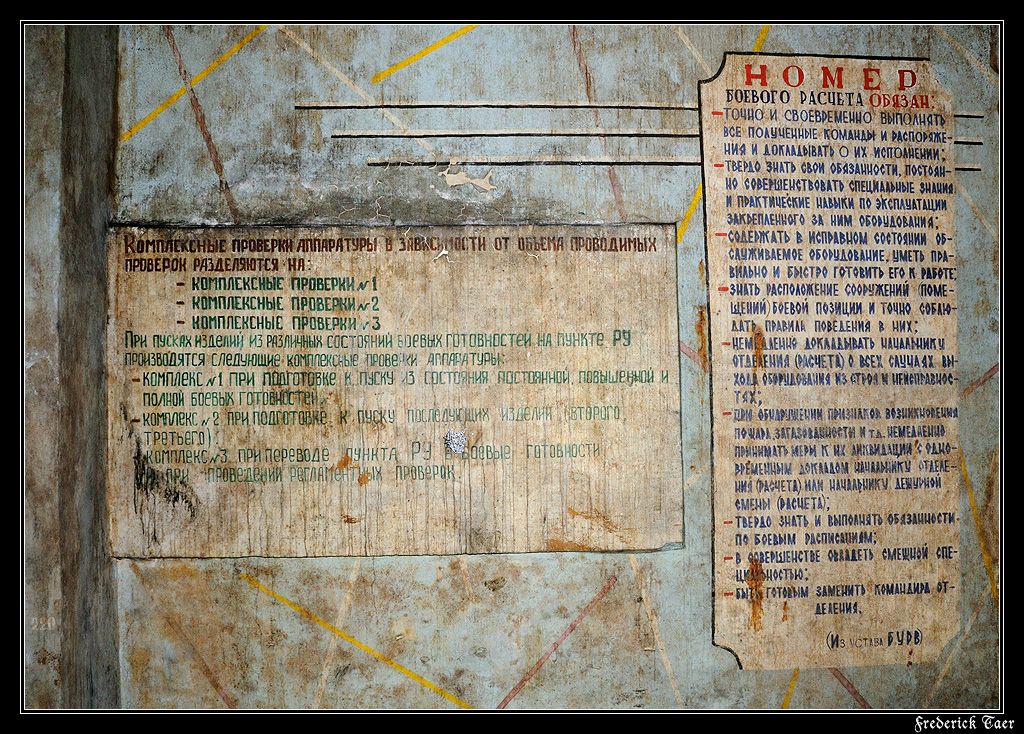 КОМПЛЕКСНЫЕ ПРОВЕРКИ АППАРАТУРЫ В ЗАВИСИМОСТИ ОТ ОБЪЕМА ПРОВОДИМЫХ
ПРОВЕРОК РАЗДЕЛЯЮТСЯ НА:
- КОМПЛЕКСНЫЕ ПРОВЕРКИ №1
- КОМПЛЕКСНЫЕ ПРОВЕРКИ №2
- КОМПЛЕКСНЫЕ ПРОВЕРКИ №3
ПРИ ПУСКАХ ИЗДЕЛИЙ ИЗ РАЗЛИЧНЫХ СОСТОЯНИЙ БОЕВЫХ ГОТОВНОСТЕЙ НА ПУНКТЕ РУ
ПРОИЗВОДЯТСЯ СЛЕДУЮЩИЕ КОМПЛЕКСНЫЕ ПРОВЕРКИ АППАРАТУРЫ:
- КОМПЛЕКС №1 ПРИ ПОДГОТОВКЕ К ПУСКУ ИЗ СОСТОЯНИЯ ПОСТОЯННОЙ, ПОВЫШЕННОЙ И
ПОЛНОЙ БОЕВЫХ ГОТОВНОСТЕЙ.
- КОМПЛЕКС №2 ПРИ ПОДГОТОВКЕ К ПУСКУ ПОСЛЕДУЮЩИХ ИЗДЕЛИЙ (ВТОРОГО,
ТРЕТЬЕГО)
КОМПЛЕКС №3, ПРИ ПЕРЕВОДЕ ПУНКТА РУ В БОЕВЫЕ ГОТОВНОСТИ
ПРИ ПРОВЕДЕНИИ РЕГЛАМЕНТНЫХ ПРОВЕРОК.
НОМЕР
БОЕВОГО РАСЧЕТА ОБЯЗАН:
- ТОЧНО И СВОЕВРЕМЕННО ВЫПОЛНЯТЬ
ВСЕ ПОЛУЧЕННЫЕ КОМАНДЫ И РАСПОРЯЖЕ-
НИЯ И ДОКЛАДЫВАТЬ О ИХ ИСПОЛНЕНИИ;
- ТВЕРДО ЗНАТЬ СВОИ ОБЯЗАННОСТИ, ПОСТОЯН-
НО СОВЕРШЕНСТВОВАТЬ СПЕЦИАЛЬНЫЕ ЗНАНИЯ
И ПРАКТИЧЕСКИЕ НАВЫКИ ПО ЭКСПЛУАТАЦИИ
ЗАКРЕПЛЕННОГО ЗА НИМ ОБОРУДОВАНИЯ;
- СОДЕРЖАТЬ В ИСПРАВНОМ СОСТОЯНИИ ОБ-
СЛУЖИВАЕМОЕ ОБОРУДОВАНИЕ, УМЕТЬ ПРА-
ВИЛЬНО И БЫСТРО ГОТОВИТЬ ЕГО К РАБОТЕ;
- ЗНАТЬ РАСПОЛОЖЕНИЕ СООРУЖЕНИЙ (ПОМЕ-
ЩЕНИЙ) БОЕВОЙ ПОЗИЦИИ И ТОЧНО СОБЛЮ-
ДАТЬ ПРАВИЛА ПОВЕДЕНИЯ В НИХ;
- НЕМЕДЛЕННО ДОКЛАДЫВАТЬ НАЧАЛЬНИКУ
ОТДЕЛЕНИЯ (РАСЧЕТА) О ВСЕХ СЛУЧАЯХ ВЫ-
ХОДА ОБОРУДОВАНИЯ ИЗ СТРОЯ И НЕИСПРАВНОС-
ТЯХ;
- ПРИ ОБНАРУЖЕНИИ ПРИЗНАКОВ ВОЗНИКНОВЕНИЯ
ПОЖАРА, ЗАГАЗОВАННОСТИ И Т.Д. НЕМЕДЛЕННО
ПРИНИМАТЬ МЕРЫ К ИХ ЛИКВИДАЦИИ С ОДНО-
ВРЕМЕННЫМ ДОКЛАДОМ НАЧАЛЬНИКУ ОТДЕЛЕ-
НИЯ (РАСЧЕТА) ИЛИ НАЧАЛЬНИКУ ДЕЖУРНОЙ
СМЕНЫ (РАСЧЕТА);
- ТВЕРДО ЗНАТЬ И ВЫПОЛНЯТЬ ОБЯЗАННОСТИ
ПО БОЕВЫМ РАСПИСАНИЯМ;
- В СОВЕРШЕНСТВЕ ОВЛАДЕТЬ СМЕЖНОЙ СПЕ-
ЦИАЛЬНОСТЬЮ;
- БЫТЬ ГОТОВЫМ ЗАМЕНИТЬ КОМАНДИРА ОТ-
ДЕЛЕНИЯ.
(ИЗ УСТАВА БУРВ)
Frederick Taer